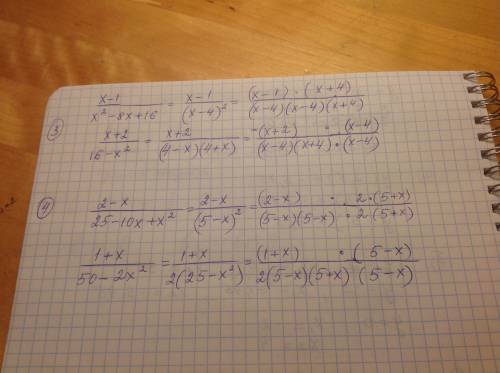 ③
(x-1)/(x²-8x+16) = (x-1)/(x-4)² = ((x-1)·(x+4))/((x-4)(x-4)(x+4))
(x+2)/(16-x²) = (x+2)/((4-x)(4+x)) = (-(x+2)·(x-4))/((x-4)(x+4)·(x-4))
④
(2-x)/(25-10x+x²) = (2-x)/(5-x)² = ((2-x)·2·(5+x))/((5-x)(5-x)·2(5+x))
(1+x)/(50-2x²) = (1+x)/(2(25-x²)) = ((1+x)·(5-x))/(2(5-x)(5+x)(5-x))